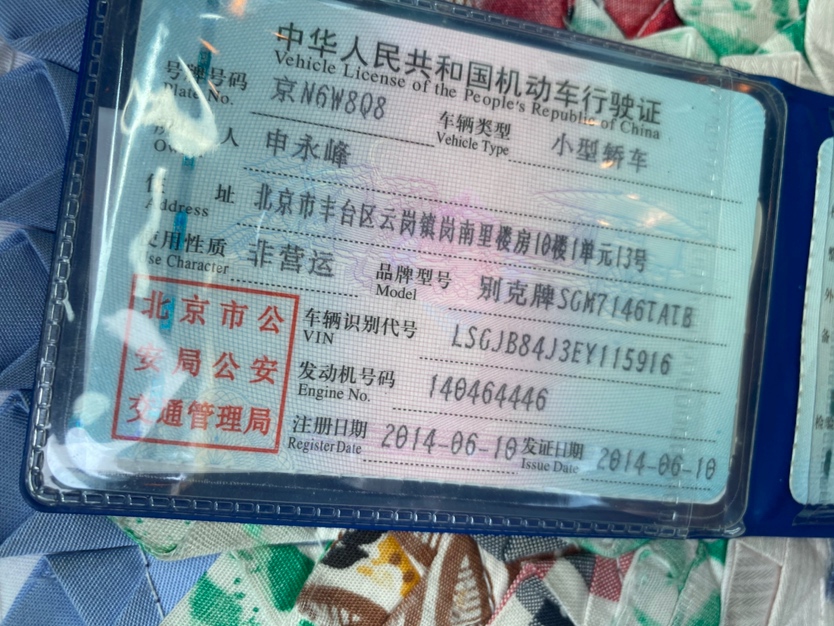 中华人民共和国机动车行驶证
Vehicle License of the People's Republic of China
号牌号码 京N6W8Q8 车辆类型 小型轿车
Plate No. Vehicle Type
人 申永峰
住 址 北京市丰台区云岗镇岗南里楼房10楼1单元13号
Address
使用性质 非营运 品牌型号 别克牌SGM7146TATB
Use Character Model
北京市公安局公安交通管理局
车辆识别代号 LSGJB84J3EY115916
VIN
发动机号码 140464446
Engine No.
注册日期 2014-06-10 发证日期 2014-06-10
Register Date Issue Date